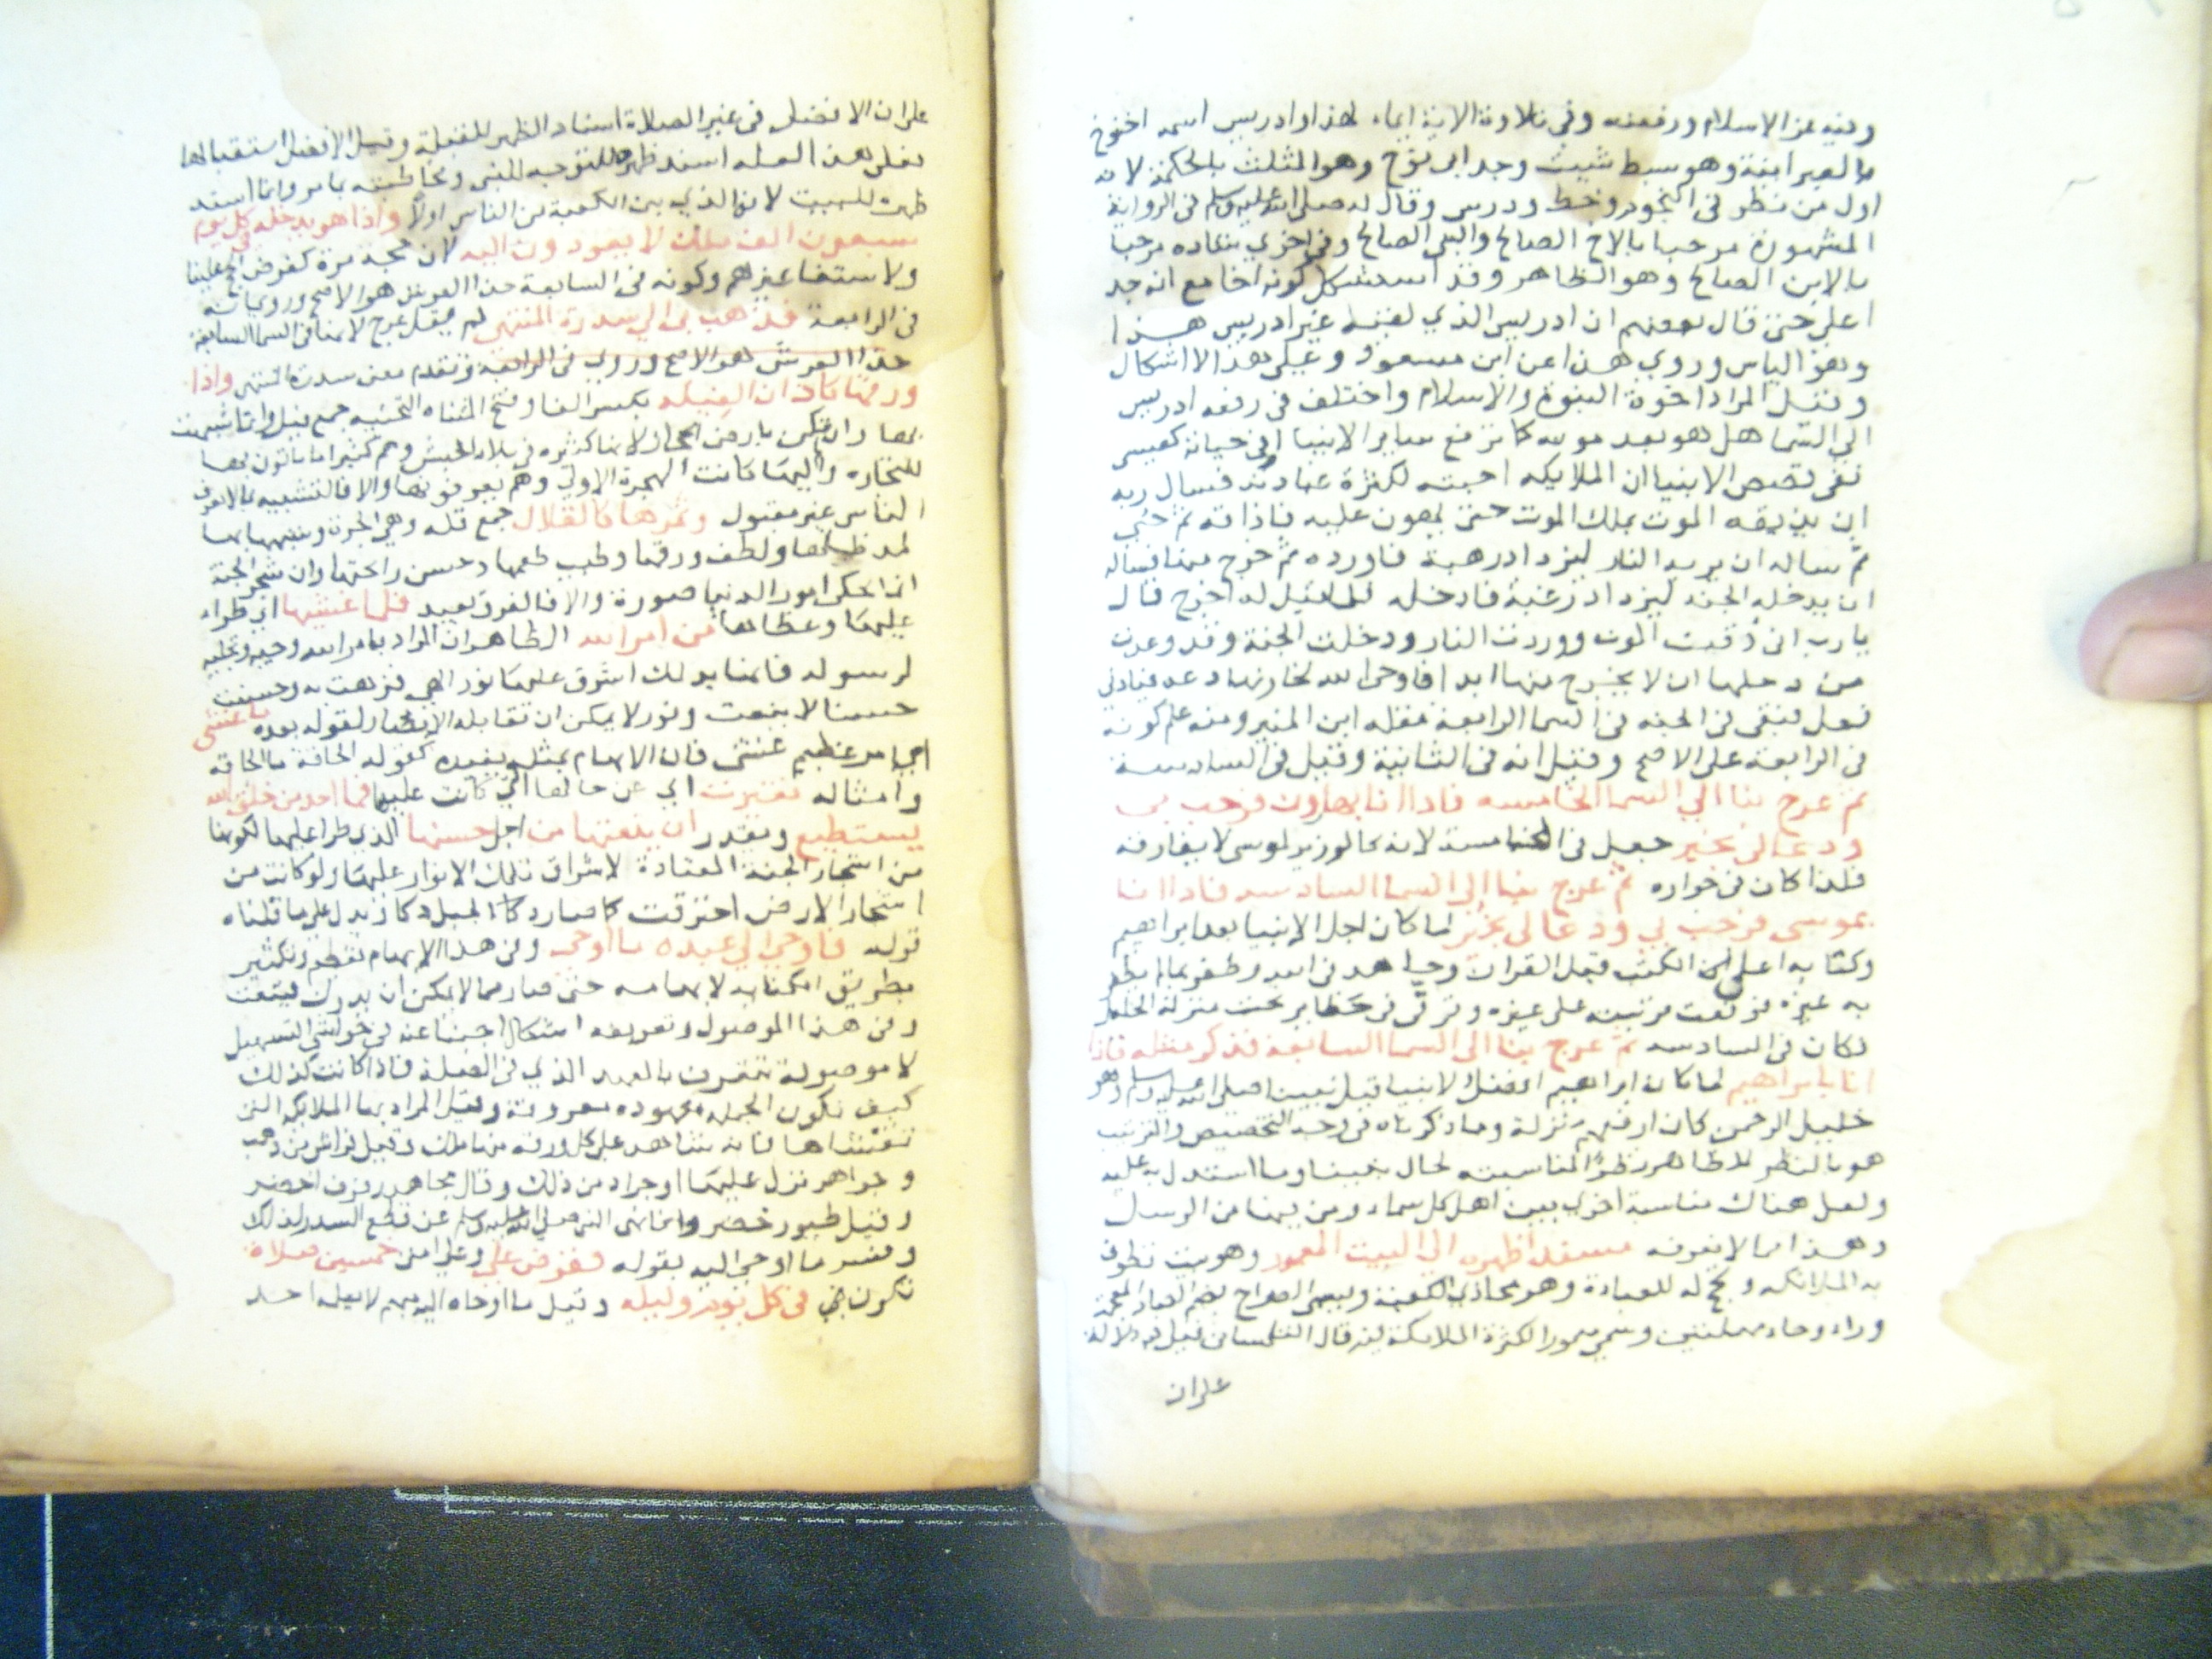 ومنه عز الاسلام ورفعته وفي تلاوة الاية ايماء لهذا وادريس اسمه اخنوخ
بالعبرانية وهو سبط شيث وجد ابى نوح وهو المثلث بالحكمة لانه
اول من نظر فى النجوم وخط ودرس وقال له صلى الله عليه وسلم فى الرواية
المشهورة مرحبا بالاخ الصالح والنبى الصالح وفى اخري شاده مرحبا
بالابن الصالح وهو الظاهر وقد استشكل كونه اخا مع انه جد
اعلى حتى قال بعضهم ان ادريس الذي لقيه غير ادريس هذا
وهو الياس وروي هذا عن ابن مسعود وعلى هذا لا اشكال
وقيل المراد اخوة النبوة والاسلام واختلف فى رفعه ادريس
الى السما هل هو بعد موته كا رفع ساير الانبيا او فى حياته كعيسى
ففى قصص الانبيا ان الملايكه احبته لكثرة عبادته فسال ربه
ان يذيقه الموت بملك الموت حتى يهون عليه فاذاقه ثم حيى
ثم ساله ان يريه النار ليزداد رهبة فاورده ثم خرج منها فساله
ان يدخله الجنه ليزداد رغبة فادخله فلما قيل له اخرج قال
يارب انى ذقت الموت ووردت النار ودخلت الجنة وقد وعدت
من دخلها ان لا يخرج منها ابدا فاوحى الله لخازنها دعه فباذني
فعل فبقى فى الجنه فى السما الرابعة نقله ابن المنير ومنه علم كونه
فى الرابعة على الاصح وقيل انه فى الثانية وقيل فى السادسة
ثم عرج بنا الى السما الخامسه فاذا انا بهارون فرحب بى
ودعا لى بخير جعل فى الخامسة لانه كالوزير لموسى لا يفارقه
فلذا كان فى جواره ثم عرج بنا الى السما السادسه فاذا انا
بموسى فرحب بي ودعا لى بخير لما كان اجل الانبيا بعد ابراهيم
وكتابه اعلى الكتب قبل القران وجاهد فى الله وظفر بما لم يظفر
به غيره فرفعت مرتبته على غيره وترقى فى حظاير تحت منزلة الخليل
فكان فى السادسه ثم عرج بنا الى السما السابعة فذكر مثله فاذا
انا بابراهيم لما كان ابراهيم افضل الانبيا قبل نبينا صلى الله عليه وسلم وهو
خليل الرحمن كان ارفعهم منزلة وما ذكرناه فى وجه التخصيص والترتيب
هو بالنظر للظاهر نظرًا لمناسبته لحال نبينا وما استدل به عليه
ولعل هناك مناسبة اخرى بين اهل كل سماء ومن فيها من الرسل
وهذا مما لا نعرفه مسندا ظهره الى البيت المعمور وهو بيت تطوف
به الملائكه وتحج له للعبادة وهو محاذى الكعبة ويسمى الضراح بضم الضاد المعجمة
وراء وحاء مهملتين وسمى معمورا لكثرة الملايكة فيه قال التلمسانى قيل فيه دلالة
على ان
على ان الافضل فى غير الصلاة اسناد الظهر للقبلة وقيل الافضل استقبالها
فعلى هذا لعله اسند ظهره للتوجه للنبى ومخاطبته بما مر وانما اسند
ظهره للبيت لانه الذي بنى الكعبة من الناس اولًا واذا هو يدخله كل يوم
سبعون الف ملك لا يعودون اليه لان حجه مرة كفرض الحج علينا
ولاستغنا غيرهم وكونه فى السابعة حذا العرش هو الاصح وروي انه
فى الرابعة فذهب بى الى سدرة المنتهى لم يقل عرج لانها فى السما السابعة
حذا العرش هو الاصح وروي فى الرابعة وتقدم معنى سدرة المنتهى واذا
ورقها كاذان الفيله بكسر الفا وفتح المثناه التحتيه جمع فيل وانما شبهت
بها وان لم تكن بارض الحجاز لانها كثيره فى بلاد الحبش وهم كثيرا ما ياتون بها
للتجاره واليها كانت الهجرة الاولي وهم يعرفونها والا فالتشبيه بما لا تعرف
الناس غير مقبول وثمرها كالقلال جمع قله وهى الجرة وشبهها بها
لمد ظلها ولطف ورقها وطيب طعمها وحسن رائحتها وان شجر الجنة
انما يحكى امور الدنيا صورة والا فالفرق بعيد فلما غشيها اي طراء
عليها وغطاها من امر الله الظاهر ان المراد بامر الله وحيه وتجليه
لرسوله فانها بذلك اشرق عليها نور الهي فزهت به وحسنت
حسنا لا ينعت ونور لا يمكن ان تقابله الابصار لقوله بعده ما غشى
اى امر عظيم غشى فان الابهام بمثله يفيده كقوله الحاقة ما الحاقه
وامثاله تغيرت اي عن حالها التي كانت عليها فما احد من خلق الله
يستطيع ويقدر ان ينعتها من اجل حسنها الذي طرا عليها لكونها
من اشجار الجنة المعتادة لاشراق تلك الانوار عليها ولو كانت من
اشجار الارض احترقت كما صار دكا الجبل دكا ويدل على ما قلناه
قوله فاوحى الى عبده ما اوحى وفى هذا الابهام تعظيم وتكثير
بطريق الكنايه لابهامه حتى صار مما لا يمكن ان يدرك فينعت
وفى هذا الموصول وتعريفه اشكال اجبنا عنه فى حواشى التسهيل
لا موصولة تتعرف بالعهد الذي فى الصلة فاذا كانت كذلك
كيف تكون الجمله معهوده معروفة وقيل المراد بها الملايكه التى
تغشاها فانه شاهد على كل ورقه منها ملك وقيل فراش من ذهب
وجواهر نزل عليها او جراد من ذلك وقال مجاهد رفرف اخضر
وقيل طيور خضر وانما نهى النبى صلى الله عليه وسلم عن قطع السدر لذلك
وفسر ما اوحى اليه بقوله ففرض علي وعلى امتى خمسين صلاة
تكون فى كل يوم وليله وقيل ما اوحاه اليه مبهم لا يعلمه احد